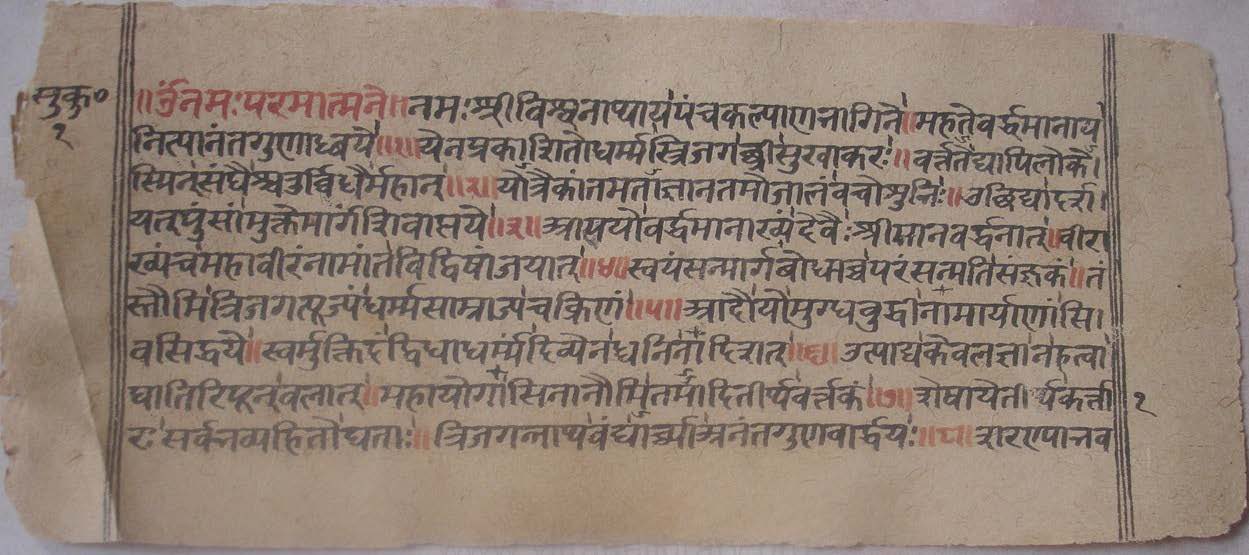 सुकु०
१
॥ॐ नमः परमात्मने॥ नमः श्रीविश्वनाथाय पंचकल्याणभागिने॥ महते वर्द्धमानाय
नित्यानंतगुणाब्धये॥१॥ येन प्रकाशितो धर्म्मस्त्रिजगच्छ्रीसुखाकरः॥ वर्त्ततेद्यापि लोके
स्मिन् संघैश्चतुर्विधैर्महान्॥२॥ यो त्रैकांतमताज्ञानतमोजालं वचोंशुभिः॥ उच्छिद्या दर्श
यत् पुंसां मुक्तेर्मार्गं शिवाप्तये॥३॥ आप यो वर्द्धमानाख्यं देवैः श्रीमानवर्द्धनात्॥ वीरा
ख्यं च महावीरं नामांते विद्विषां जयात्॥४॥ स्वयं सन्मार्गबोधाच्च परं सन्मतिसंज्ञकं॥ तं
स्तौमि त्रिजगत्पूज्यं धर्म्मसाम्राज्यचक्रिणं॥५॥ आदौ यो मुग्धबुद्धीनामार्याणां सि
वसिद्धये॥ स्वर्मुक्तिदं द्विधा धर्म्यं दिव्येन ध्वनिना दिशत्॥६॥ उत्पाद्य केवलज्ञानं हत्वा
घातिरिपून् बलात्॥ महायोगासिना नौमि तमादितीर्थवर्त्तकं॥७॥ शेषा ये तीर्थकर्त्ता
रः सर्वभव्यहितोद्यताः॥ त्रिजगन्नाथवंद्यार्च्या अनंतगुणवार्द्धयः॥८॥ शरण्या भव
१